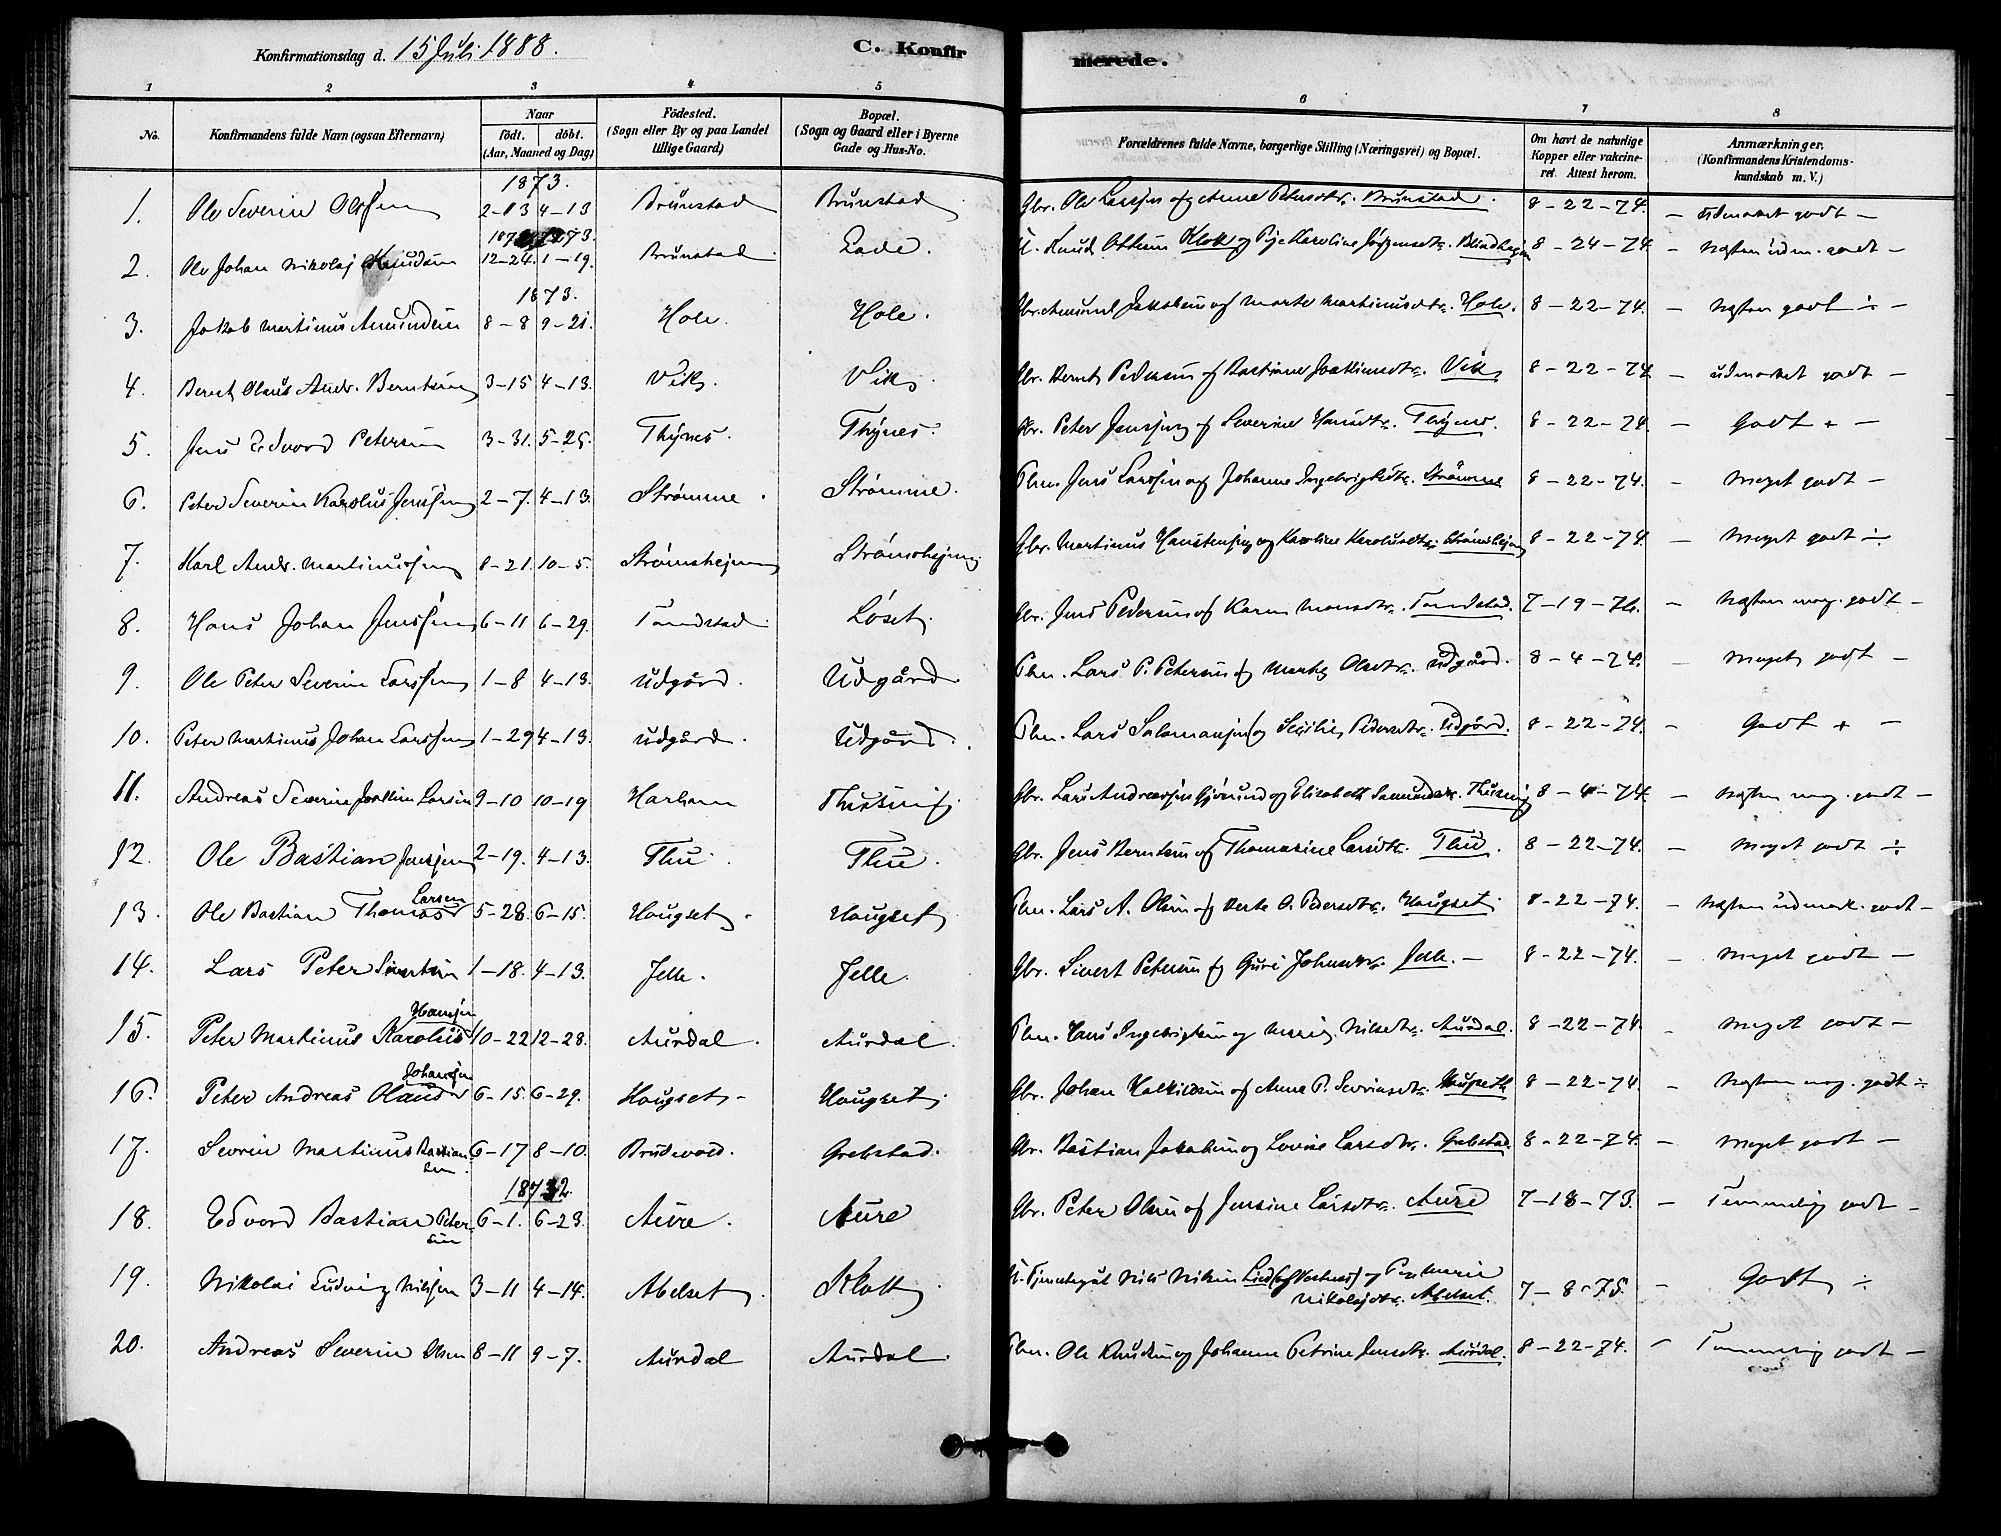 Konfirmationsdag d. 15 Juli 1888.
C. Konfirmerede.
1 2 3 4 5 6 7 8
No. | Konfirmandens fulde Navn (ogsaa Efternavn) | Naar födt. döbt. (Aar, Maaned og Dag) | Födested. (Sogn eller By og paa Landet tillige Gaard) | Bopæl. (Sogn og Gaard eller i Byerne Gade og Hus-No. | Forældrenes fulde Navne, borgerlige Stilling (Næringsvei) og Bopæl. | Om havt de naturlige Kopper eller vakcineret. Attest herom. | Anmærkninger. (Konfirmandens Kristendomskundskab m. V.)
1873.
1. Ole Severin Olsen 2-13 4-13 Brunstad Brunstad Gbr. Ole Larssen og Anne Petersdtr. Brunstad. 8-22-74. - udmærket godt -
1872 1873.
2. Ole Johan Nikolaj Knudsen 12-24. 1-19. Brunstad Lade. Knud Ottesen Klok og Karoline Jørgensdtr. 8-24-74. - Næsten udm. godt -
1873.
3. Jakob Martinus Amundsen 8-8 9-21. Hole. Hole. Gbr. Amund Jakobsen og Marte Martinusdtr. Hole. 8-22-74. - Næsten godt ÷ -
4. Bernt Olaus Andr. Berntsen 3-15 4-13. Vik. Vik. Gbr. Bernt Pedersen og Bastiane Joakimsdtr. Vik 8-22-74 - udmærket godt -
5. Jens Edvard Petersen 3-31. 5-25. Thynes. Thynes. Gbr. Peter Jenssen og Severine Hansdtr. Thynes. 8-22-74. - Godt + -
6. Peter Severin Karolus Jenssen 2-7. 4-13. Strømme. Strømme. Plm. Jens Larssen og Johanne Ingebrigtsdtr. Strømme 8-22-74. - Meget godt -
7. Karl Andr. Martinussen 8-21. 10-5. Strømshejm Strømshejm Gbr. Martinus Karoline Karolusdtr. Strømshejm 8-22-74. - Meget godt ÷
8. Hans Johan Jenssen 6-11 6-29. Tandstad Løset. Gbr. Jens Pedersen og Karen Monsdtr. Tandstad. 7-19-76. - Næsten meg. godt -
9. Ole Peter Severin Larssen 1-8 4-13. Udgård. Udgård Plm. Lars P. Petersen og Marte Olsdtr. Udgård. 8-4-74. - Meget godt -
10. Peter Martinus Johan Larssen 1-29 4-13. Udgård. Udgård. Plm. Lars Salamonsen og Pedersdtr. Udgård. 8-22-74. - Godt + -
11. Andreas Severin Joakim Larsen 9-10 10-19 Harham Gbr. Lars Andreassen og Elisabeth 8-4-74. - Næsten meg. godt -
12. Ole Bastian Jenssen 2-19. 4-13. Thu. Thu. Gbr. Jens Berntsen og Thomasine Larsdtr. Thu. 8-22-74. - Meget godt ÷
13. Ole Bastian Thomas Larsen 5-28. 6-15. Haugset. Haugset Plm. Lars A. Olsen og O. Pedersdtr. Haugset. 8-22-74. - Næsten udmærk. godt -
14. Lars Peter Sivertsen 1-18. 4-13. Jelle. Jelle. Gbr. Sivert Petersen og Guri Johnsdtr. Jelle. - 8-22-74. - Meget godt -
15. Peter Martinus Karolus Hansen 10-22 12-28. Aurdal. Aurdal. Plm. Hans Ingebrigtsen og Nilsdtr. Aurdal. 8-22-74. - Meget godt -
16. Peter Andreas Olaus Johansen 6-15. 6-29. Haugset - Haugset. Gbr. Johan og Anne P. Sevrinsdtr. 8-22-74. - Næsten meg. godt ÷
17. Sevrin Martinus Bastiansen 6-17 8-10. Brudevold. Grebstad. Gbr. Bastian Jakobsen og Lovise Larsdtr. Grebstad. 8-22-74. - Meget godt -
1872.
18. Edvard Bastian Petersen 6-1. 6-23. Aure. Aure Gbr. Peter Olsen og Jensine Larsdtr. Aure 7-18-73. - Temmelig godt -
19. Nikolai Ludvig Nilssen 3-11 4-14. Abelset. Klok Nils Nilsen Marie Nikolajsdtr. Abelset. 7-8-75. - Godt ÷
20. Andreas Severin Olsen 8-11 9-7. Aurdal Aurdal. Plm. Ole Knudsen og Johanne Petrine Jensdtr. Aurdal. 8-22-74. - Temmelig godt -